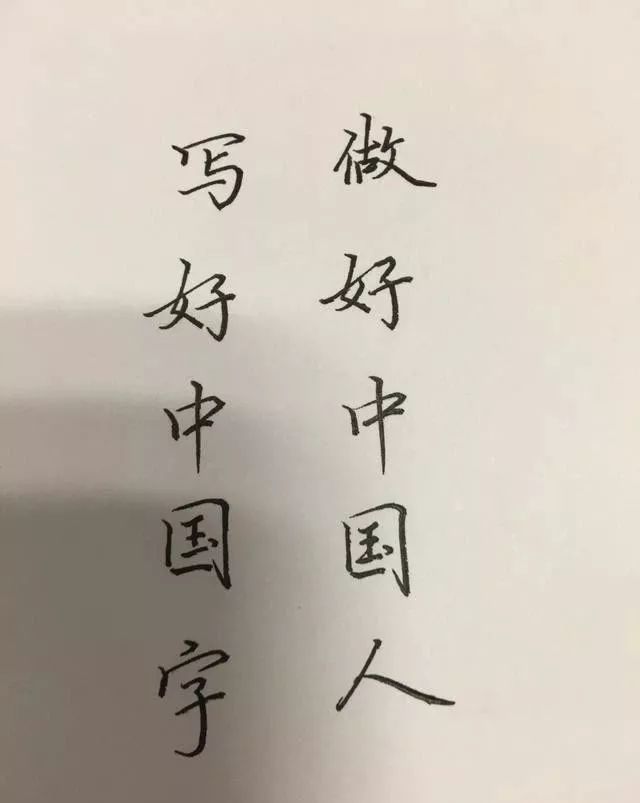 做好中国人
写好中国字